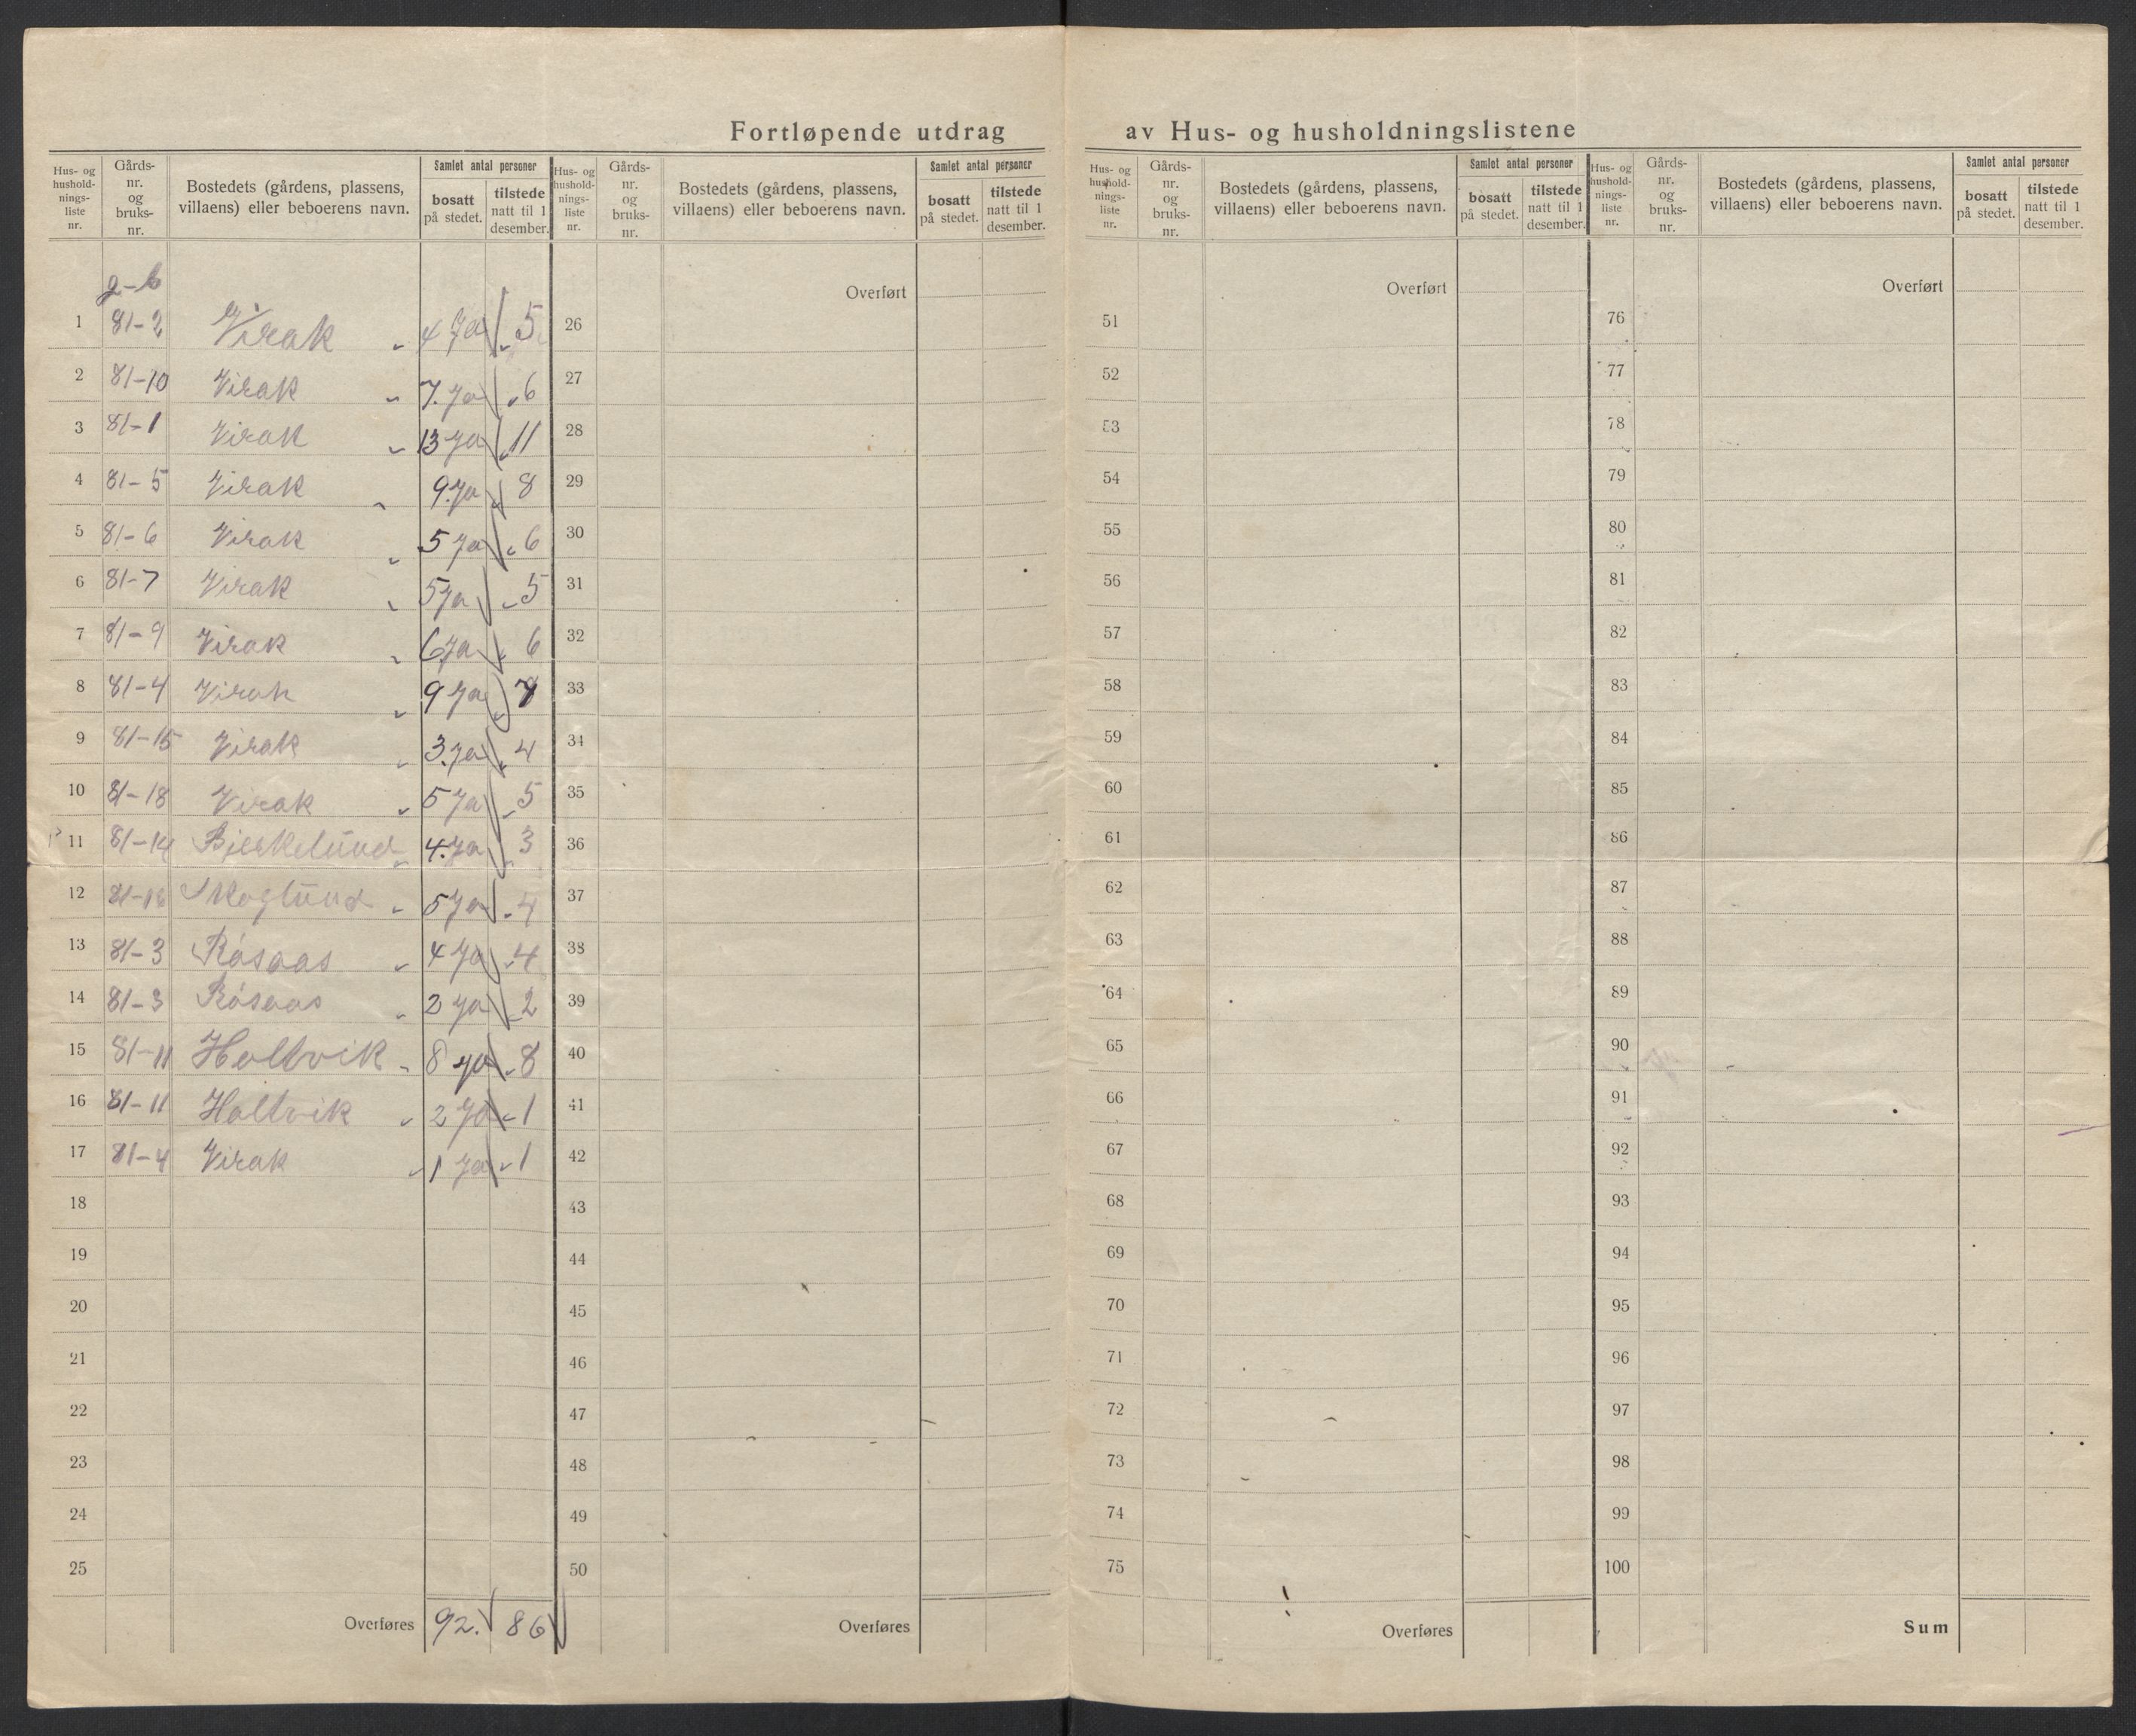 Fortløpende utdrag av Hus- og husholdningslistene
Hus- og hushold- nings- liste nr. Gårds- nr. og bruks- nr. Bostedets (gårdens, plassens, villaens) eller beboerens navn. Samlet antal personer bosatt på stedet. tilstede natt til 1 desember.
Hus- og hushold- nings- liste nr. Gårds- nr. og bruks- nr. Bostedets (gårdens, plassens, villaens) eller beboerens navn. Samlet antal personer bosatt på stedet. tilstede natt til 1 desember.
Hus- og hushold- nings- liste nr. Gårds- nr. og bruks- nr. Bostedets (gårdens, plassens, villaens) eller beboerens navn. Samlet antal personer bosatt på stedet. tilstede natt til 1 desember.
Hus- og hushold- nings- liste nr. Gårds- nr. og bruks- nr. Bostedets (gårdens, plassens, villaens) eller beboerens navn. Samlet antal personer bosatt på stedet. tilstede natt til 1 desember.
g-b
1 81-2 Virak 4 ja 5
2 81-10 Virak 7. ja 6
3 81-1 Virak 13 ja 11
4 81-5 Virak 9. ja 8
5 81-6 Virak 5 ja 6
6 81-7 Virak 5 ja 5
7 81-9 Virak 6 ja 6
8 81-4 Virak 9 ja
9 81-15 Virak 3. ja 4
10 81-18 Virak 5 ja 5
11 81-14 Bjerkelund 4. ja 3
12 81-16 Skoglund 5 ja 4
13 81-3 Råsaas 4 ja 4
14 81-3 Råsaas 2 ja 2
15 81-11 Holtvik 8 ja 8
16 81-11 Holtvik 2 ja 1
17 81-4 Virak 1 ja 1
18
19
20
21
22
23
24
25
Overføres 92. 86
Overført
26
27
28
29
30
31
32
33
34
35
36
37
38
39
40
41
42
43
44
45
46
47
48
49
50
Overføres
Overført
51
52
53
54
55
56
57
58
59
60
61
62
63
64
65
66
67
68
69
70
71
72
73
74
75
Overføres
Overført
76
77
78
79
80
81
82
83
84
85
86
87
88
89
90
91
92
93
94
95
96
97
98
99
100
Sum